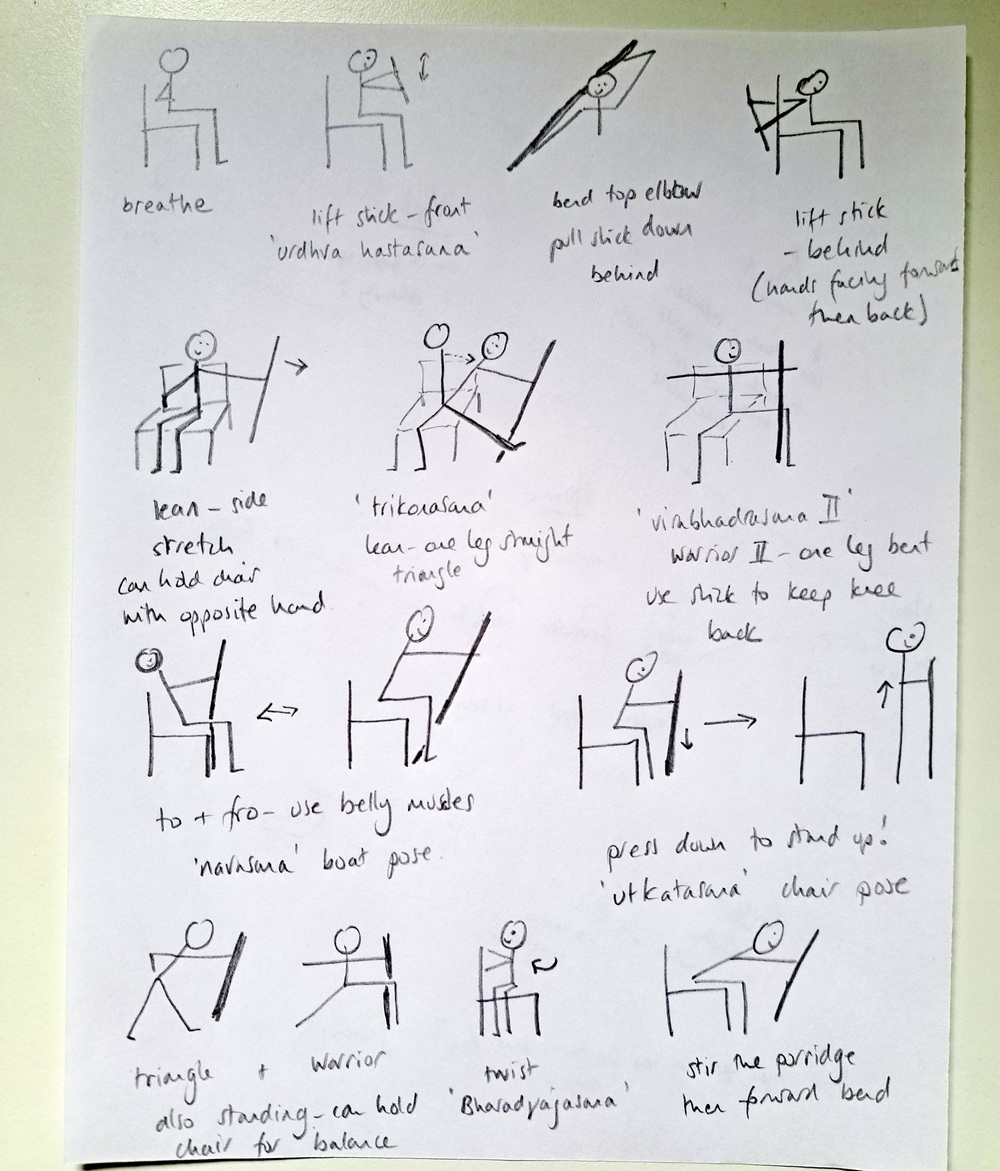 breathe
lift stick - front
'urdhva hastasana'
bend top elbow
pull stick down
behind
lift stick
- behind
(hands facing forward
then back)
lean - side
stretch
can hold chair
with opposite hand
'trikonasana'
lean - one leg straight
triangle
'virabhadrasana II'
warrior II - one leg bent
use stick to keep knee
back
to + fro - use belly muscles
'navasana' boat pose.
press down to stand up!
'utkatasana' chair pose
triangle + warrior
also standing - can hold
chair for balance
twist
'Bharadvajasana'
stir the porridge
then forward bend